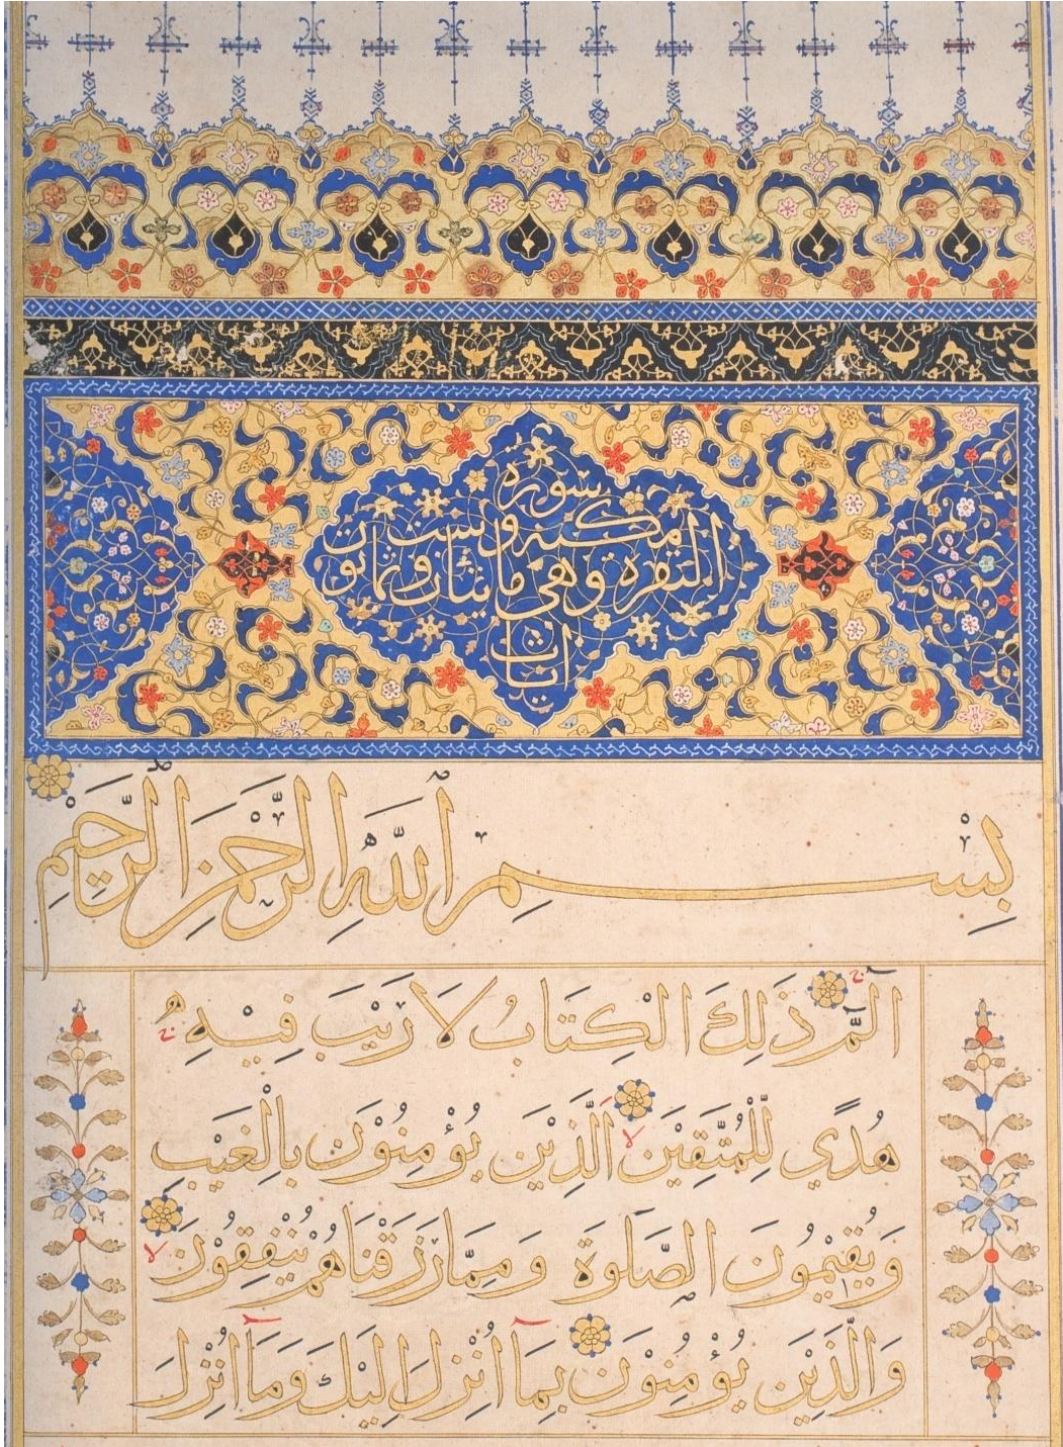 سورة
البقره مكية وهي مايتان وست وثمانون
ايات
بِسْمِ اللّٰهِ الرَّحْمٰنِ الرَّحِيْمِ
الٓمّٓ ذَلِكَ الْكِتَابُ لَا رَيْبَ فِيْهِ
هُدًي لِّلْمُتَّقِيْنَ الَّذِيْنَ يُؤْمِنُوْنَ بِالْغَيْبِ
وَيُقِيْمُوْنَ الصَّلٰوةَ وَمِمَّا رَزَقْنَاهُمْ يُنْفِقُوْنَ
وَالَّذِيْنَ يُؤْمِنُوْنَ بِمَآ اُنْزِلَ اِلَيْكَ وَمَآ اُنْزِلَ